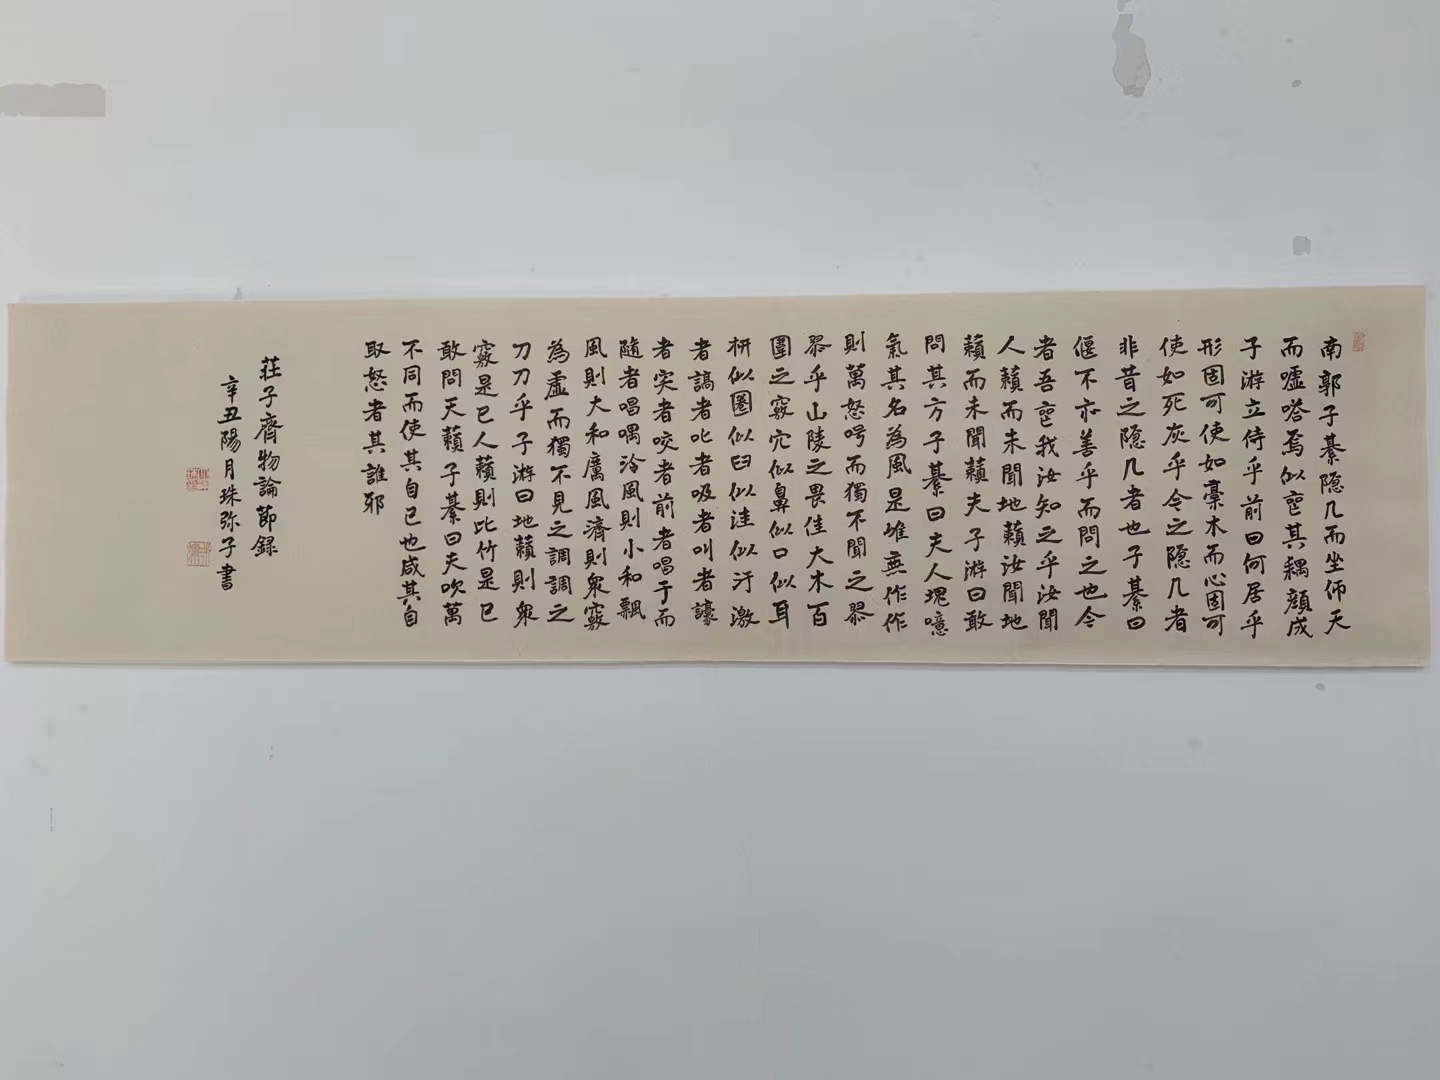 南郭子綦隐几而坐仰天
而噓嗒焉似䘮其耦顔成
子游立侍乎前曰何居乎
形固可使如槀木而心固可
使如死灰乎今之隐几者
非昔之隐几者也子綦曰
偃不亦善乎而問之也今
者吾䘮我汝知之乎汝聞
人籟而未聞地籟汝聞地
籟而未聞籟夫子游曰敢
問其方子綦曰夫人塊噫
氣其名為風是唯無作作
則萬怒呺而獨不聞之翏
翏乎山陵之畏佳大木百
圍之竅穴似鼻似口似耳
枅似圈似臼似洼似汙激
者謞者叱者吸者叫者譹
者宎者咬者前者唱于而
隨者唱喁泠風則小和飄
風則大和厲風濟則衆竅
為虛而獨不見之調調之
刀刀乎子游曰地籟則衆
竅是已人籟則比竹是已
敢問天籟子綦曰夫吹萬
不同而使其自已也咸其自
取怒者其誰邪
莊子齊物論節錄
辛丑陽月珠弥子書